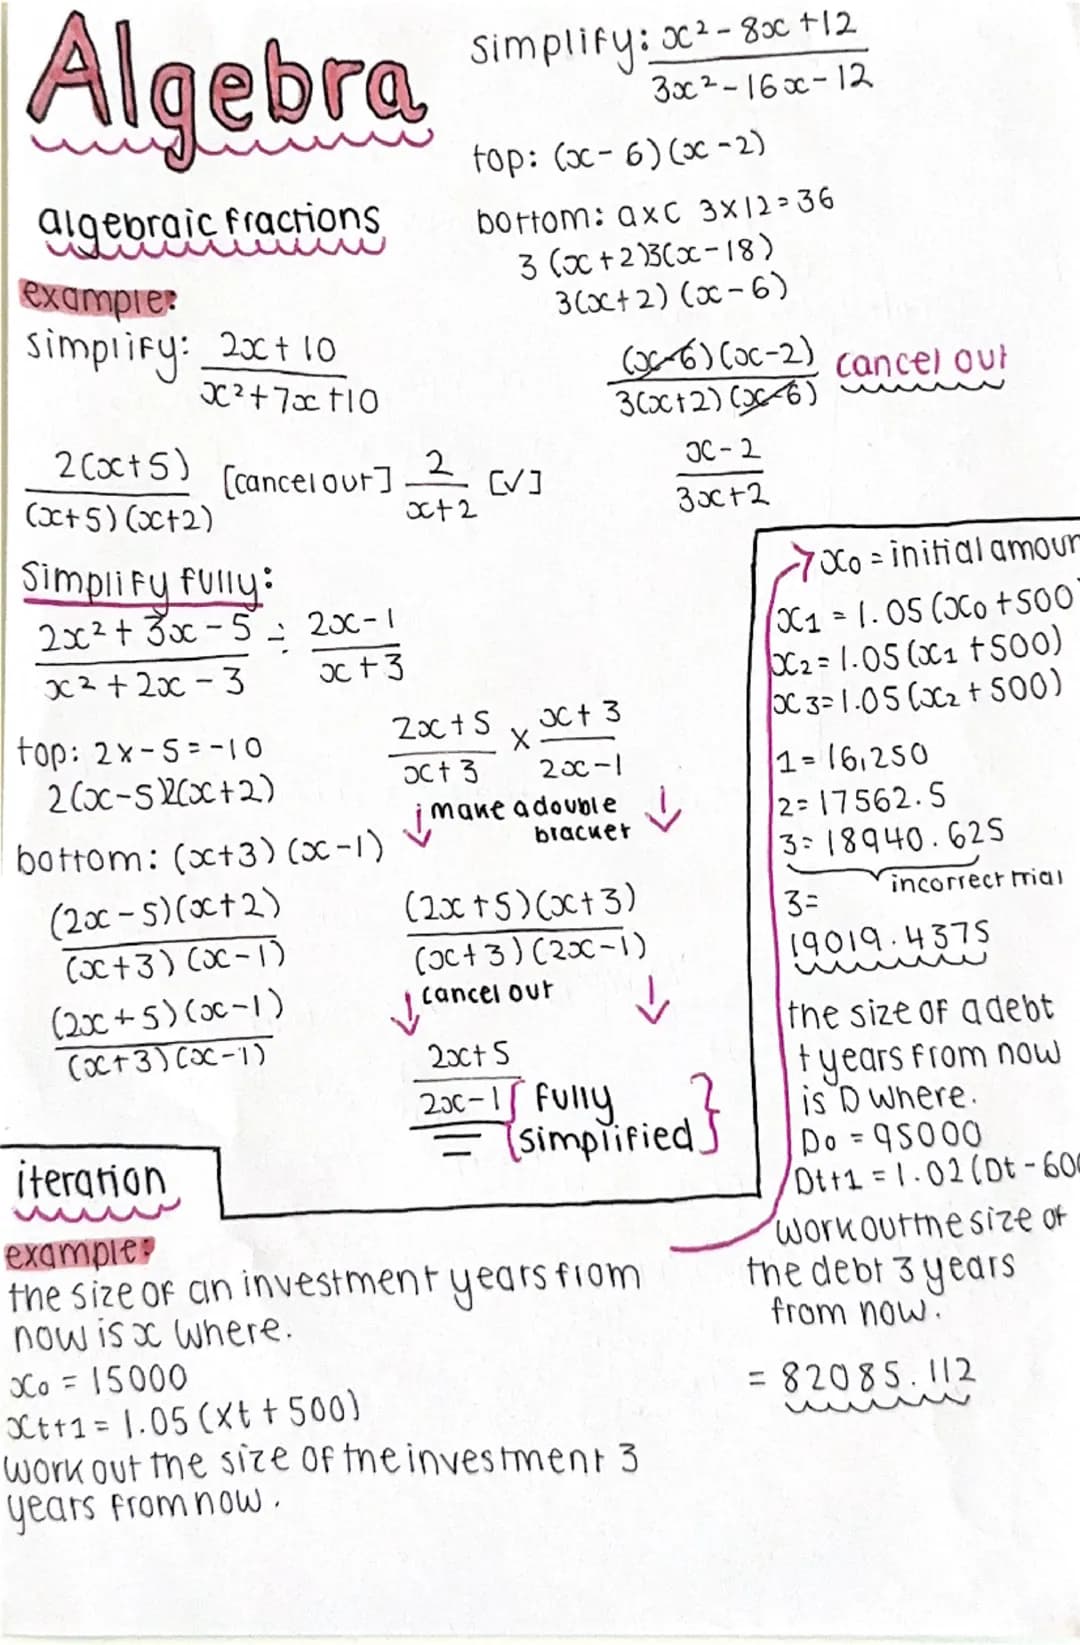 Algebra
algebraic fractions
example:
simplify: 2x + 10
x² + 7x + 10
2(x+5) [cancel out] 2 [√]
(x+5)(x+2) x+2
simplify: x² - 8x + 12
3x² - 16x - 12
top: (x - 6)(x - 2)
bottom: axc 3x12 = 36
3(x+2)3(x-18)
3(x+2)(x-6)
(x-6)(x-2) cancel out
3(x+2)(x-6)
x - 2
3x+2
Simplify fully:
2x² + 3x - 5 ÷ 2x - 1
x² + 2x - 3 x + 3
top: 2x-5 = -10
2(x-5)2(x+2)
bottom: (x+3)(x-1)
(2x - 5)(x+2)
(x+3)(x-1)
(2x + 5)(x-1)
(x+3)(x-1)
2x+5 x x+3
x+3 2x-1
make a double
bracket
(2x+5)(x+3)
(x+3)(2x-1)
cancel out
2x+5
2x-1 { fully
simplified }
iteration
example:
the size of an investment years from
now is x where.
x₀ = 15000
xt+1 = 1.05 (xt + 500)
work out the size of the investment 3
years from now.
x₀ = initial amoun
x1 = 1.05 (x₀ + 500
x2 = 1.05 (x1 + 500)
x3 = 1.05 (x2 + 500)
1 = 16,250
2 = 17562.5
3 = 18940.625
incorrect trial
3=
19019.4375
the size of a debt
t years from now
is D where.
D₀ = 95000
Dt+1 = 1.02 (Dt - 600
work out the size of
the debt 3 years
from now.
= 82085.112